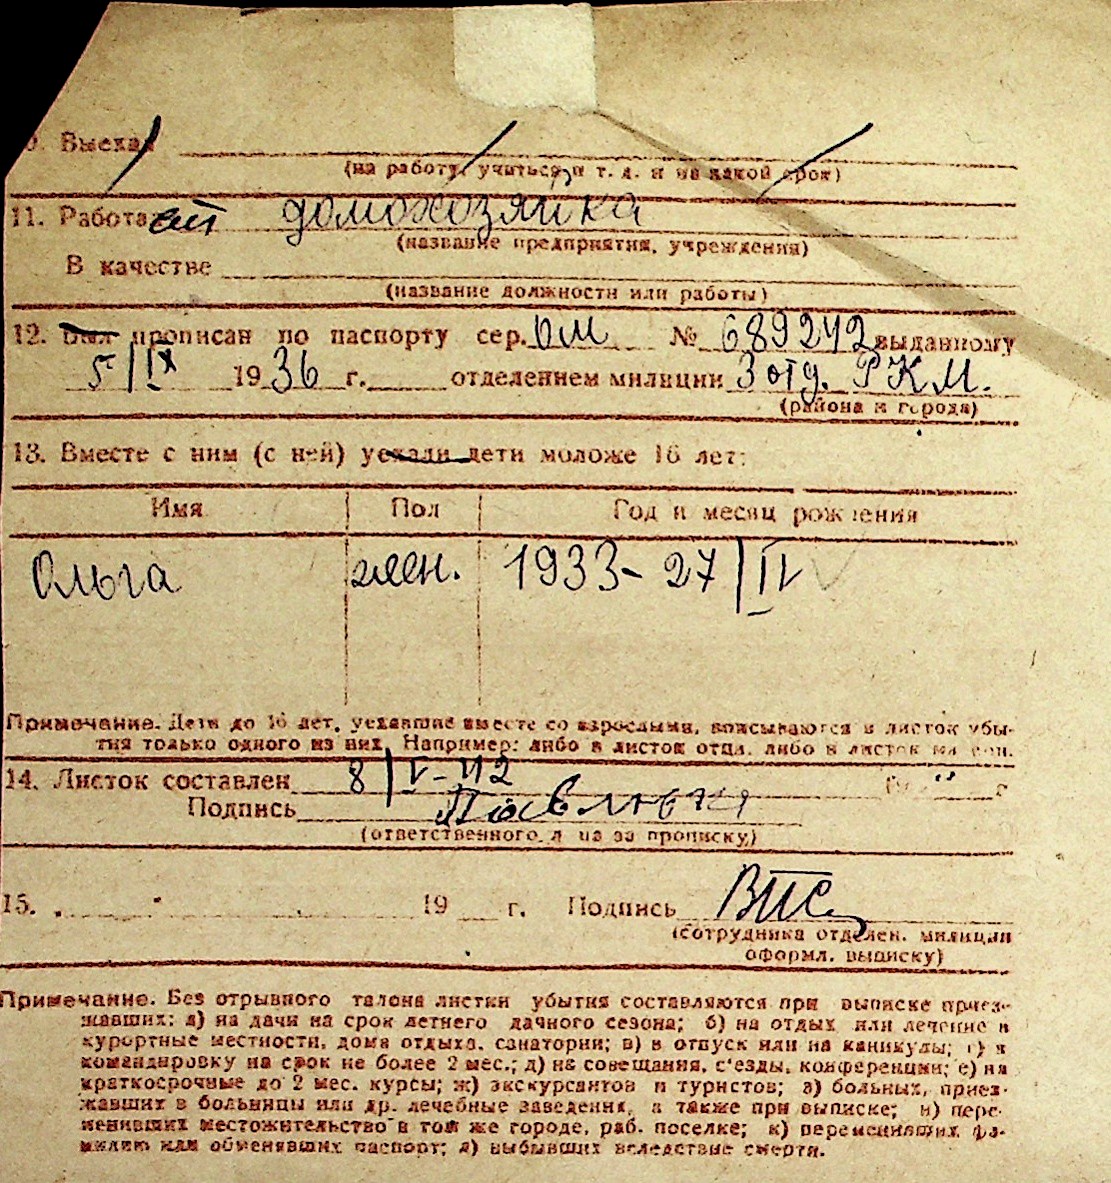 Выехал
(на работу, учиться и т. д. и на какой срок)
11. Работает домохозяйка
(название предприятия, учреждения)
В качестве
(название должности или работы)
12. Был прописан по паспорту сер. ОМ № 689242 выданному
5/IX 1936 г. отделением милиции 3 отд. РКМ.
(района и города)
13. Вместе с ним (с ней) уехали дети моложе 16 лет:
Имя Пол Год и месяц рождения
Ольга жен. 1933- 27/IV
Примечание. Дети до 16 лет, уехавшие вместе со взрослыми, вписываются в листок убы-
тия только одного из них. Например: либо в листок отца, либо в листок матери.
14. Листок составлен 8/V-42 г.
Подпись
(ответственного лица за прописку)
15. 19 г. Подпись
(сотрудника отделен. милиции
оформл. выписку)
Примечание. Без отрывного талона листки убытия составляются при выписке приез-
жавших: а) на дачи на срок летнего дачного сезона; б) на отдых или лечение в
курортные местности, дома отдыха, санатории; в) в отпуск или на каникулы; г) в
командировку на срок не более 2 мес.; д) на совещания, с'езды, конференции; е) на
краткосрочные до 2 мес. курсы; ж) экскурсантов и туристов; з) больных, приез-
жавших в больницы или др. лечебные заведения, а также при выписке; и) пере-
менивших местожительство в той же городе, раб. поселке; к) переменивших фа-
милию или обменявших паспорт; л) выбывших вследствие смерти.